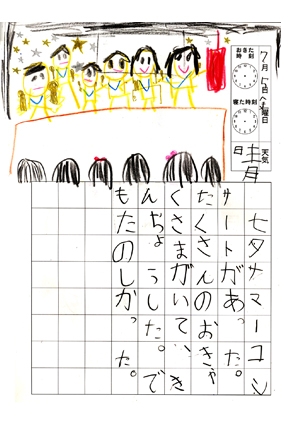 おきた時刻
7月5日土曜日
寝た時刻
天気
晴
七夕サマーコン
サートがあった。
たくさんのおきゃ
くさまがいて、き
んちょうした。で
もたのしかった。